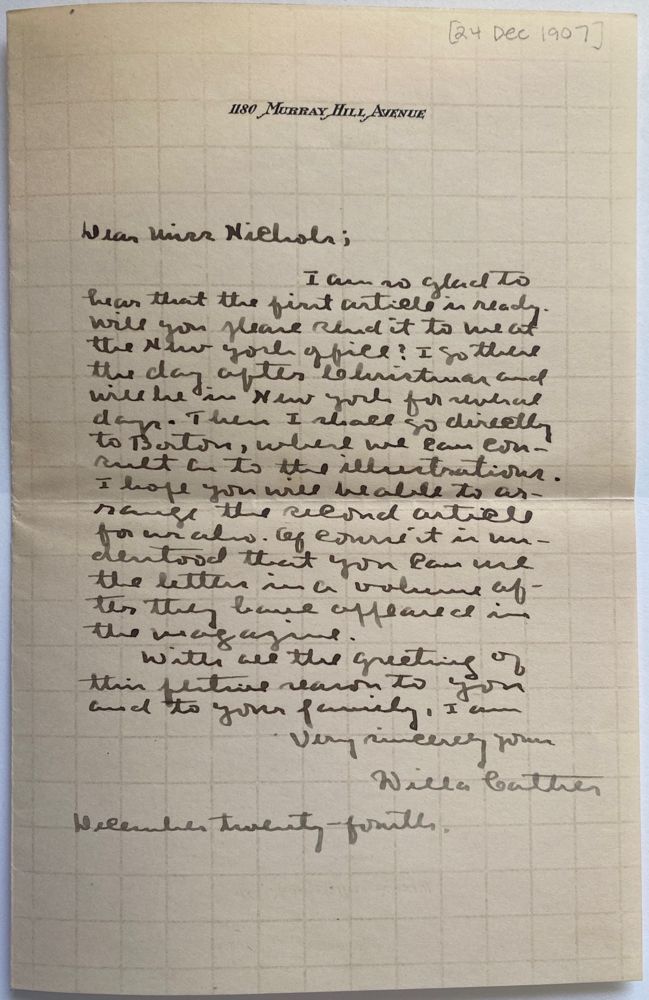 [24 Dec 1907]
1180 Murray Hill Avenue
Dear Miss Nichols;
I am so glad to
hear that the first article is ready.
Will you please send it to me at
the New York office? I go there
the day after Christmas and
will be in New York for several
days. Then I shall go directly
to Boston, where we can con-
sult as to the illustrations.
I hope you will be able to ar-
range the second article
for us also. Of course it is un-
derstood that you can use
the letters in a volume af-
ter they have appeared in
the magazine.
With all the greeting of
this festive season to you
and to your family, I am
Very sincerely yours
Willa Cather
December twenty-fourth.